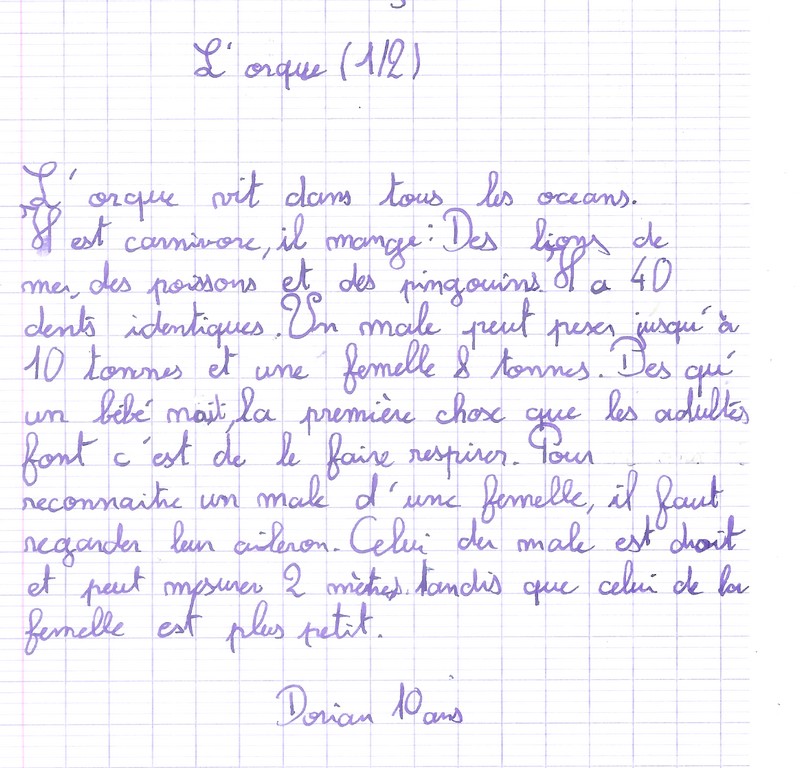 L'orque (1/2)
L'orque vit dans tous les oceans.
Il est carnivore, il mange: Des lions de
mer, des poissons et des pingouins. Il a 40
dents identiques. Un male peut peser jusqu'à
10 tonnes et une femelle 8 tonnes. Des qu'
un bébé nait, la première chose que les adultes
font c'est de le faire respirer. Pour
reconnaitre un male d'une femelle, il faut
regarder leur aileron. Celui du male est droit
et peut mesurer 2 mètres tandis que celui de la
femelle est plus petit.
Dorian 10 ans